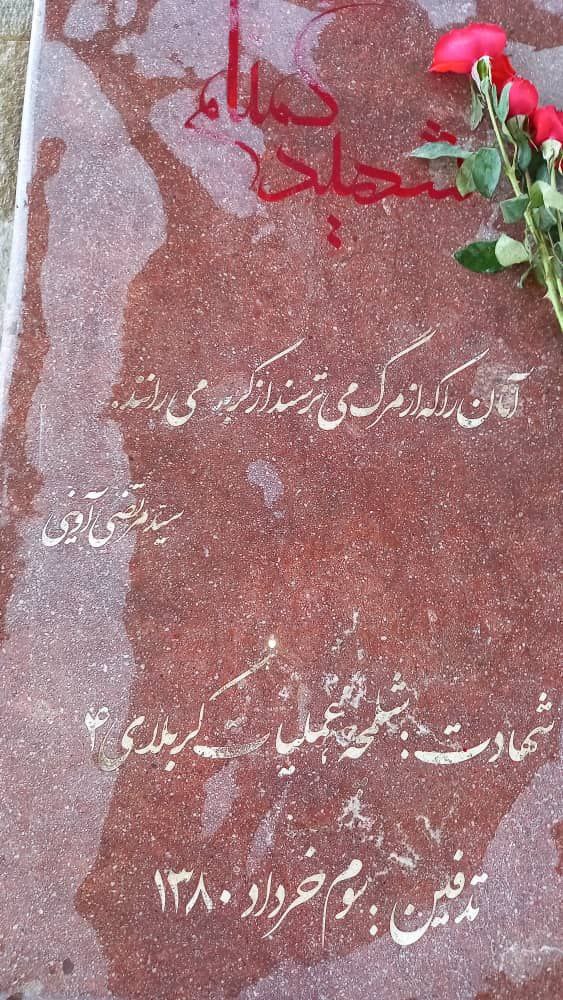 شهید
گمنام
آنان را که از مرگ می ترسند از کربلا می رانند.
سید مرتضی آوینی
شهادت: شلمچه عملیات کربلای ۴
تدفین: سوم خرداد ۱۳۸۰